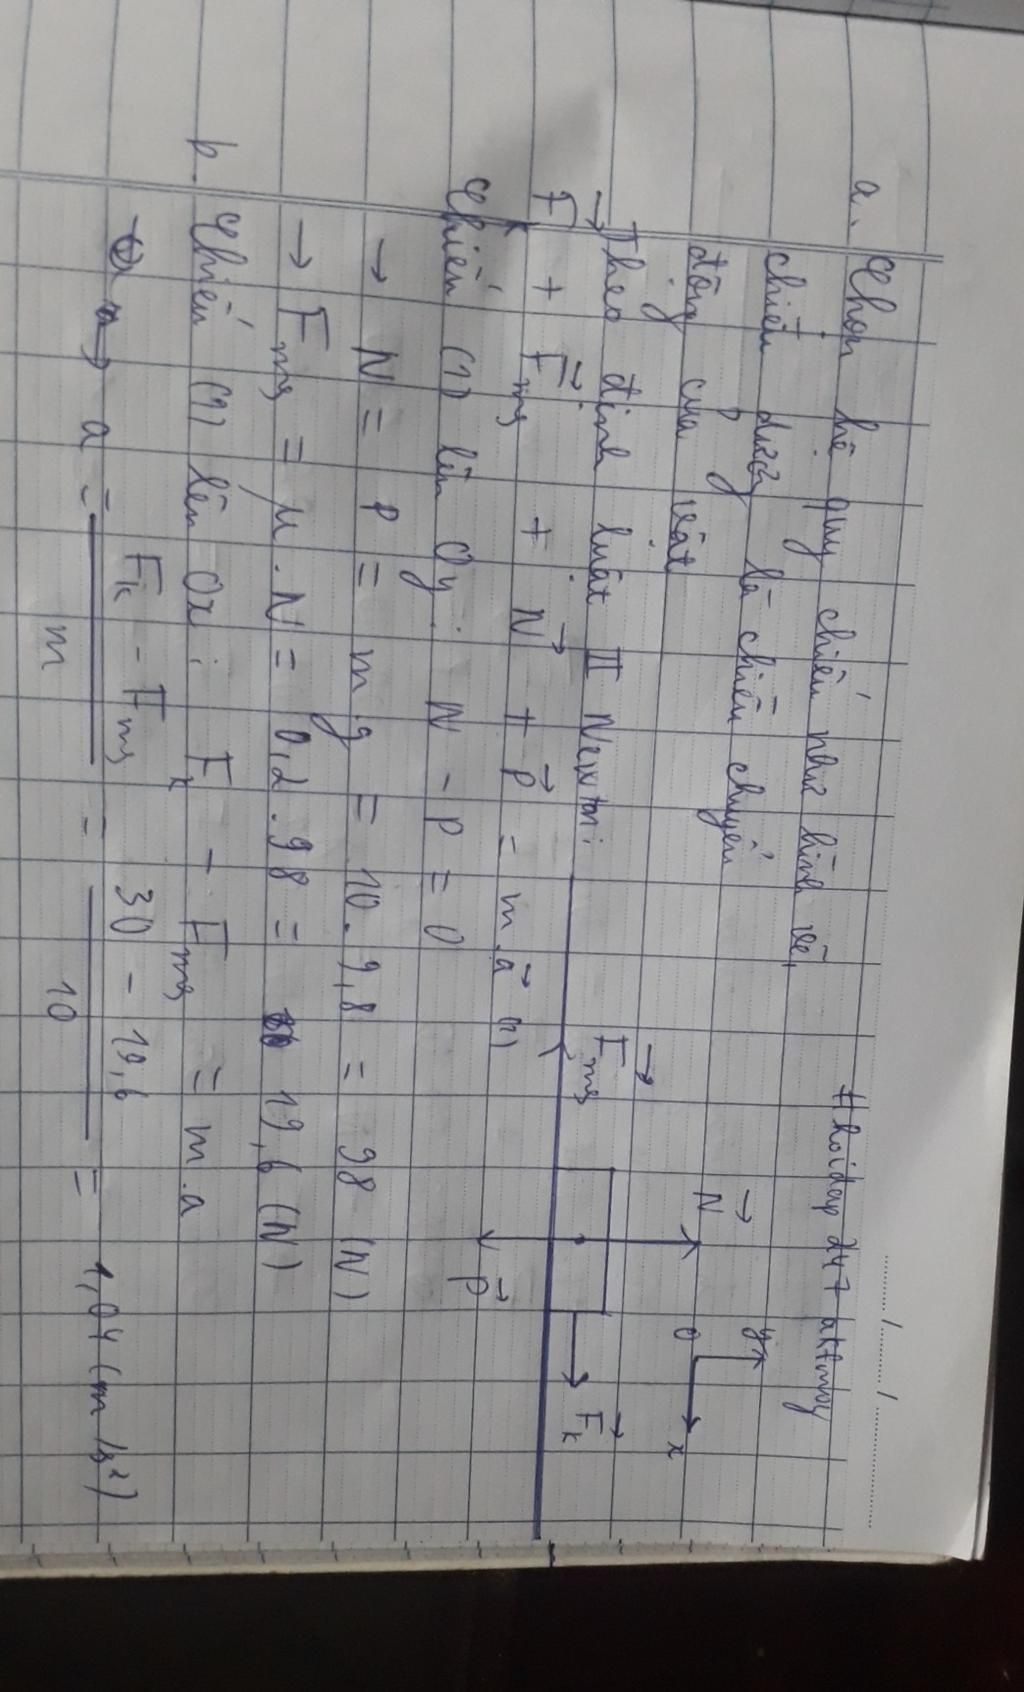 ...../...../.....
#hoidap247aktmoy
a. Chọn hệ quy chiếu như hình vẽ,
chiều dương là chiều chuyển
động của vật
Theo định luật II Newton:
y
O
x
N→
F→ms
F→k
P→
F→k + F→ms + N→ + P→ = m.a→ (1)
Chiếu (1) lên Oy: N - P = 0
→ N = P = mg = 10.9,8 = 98 (N)
→ Fms = μ.N = 0,2.98 = 19,6 (N)
b. Chiếu (1) lên Ox: Fk - Fms = m.a
→ a = (Fk - Fms)/m = (30 - 19,6)/10 = 1,04 (m/s²)